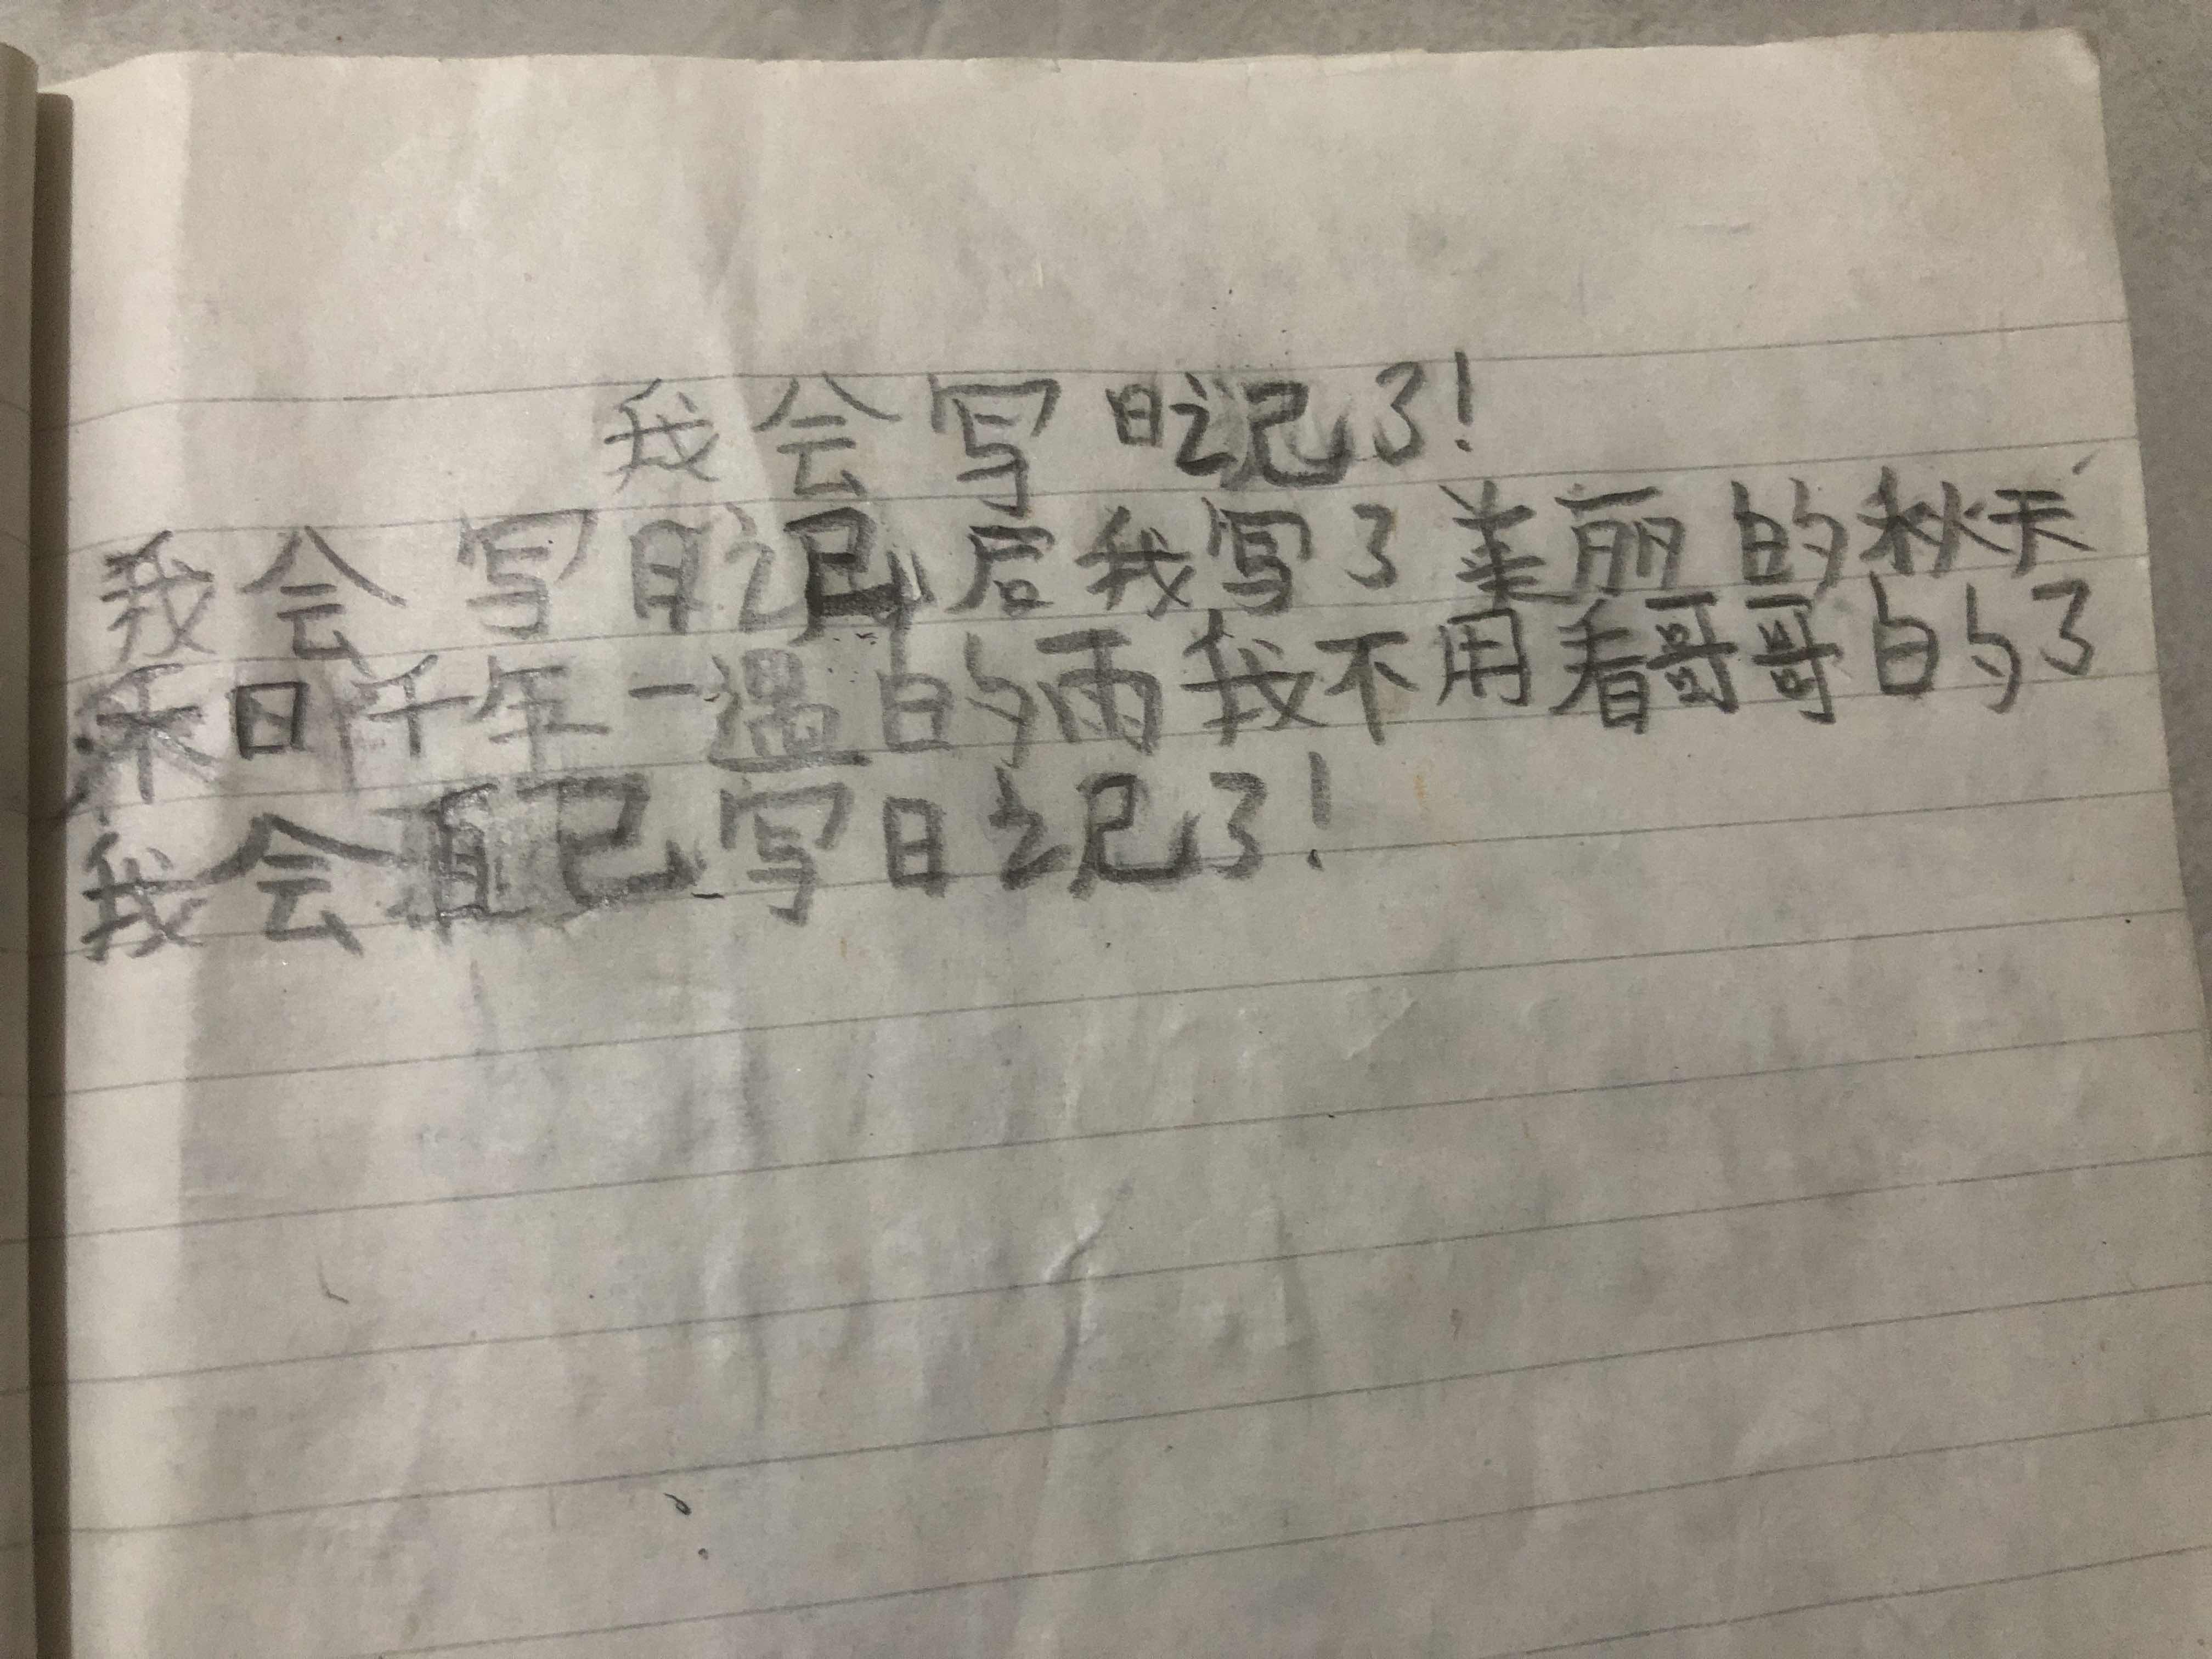 我会写日记了!
我会写日记后我写了美丽的秋天
禾日千年一遇的雨我不用看哥哥的了
我会自己写日记了!